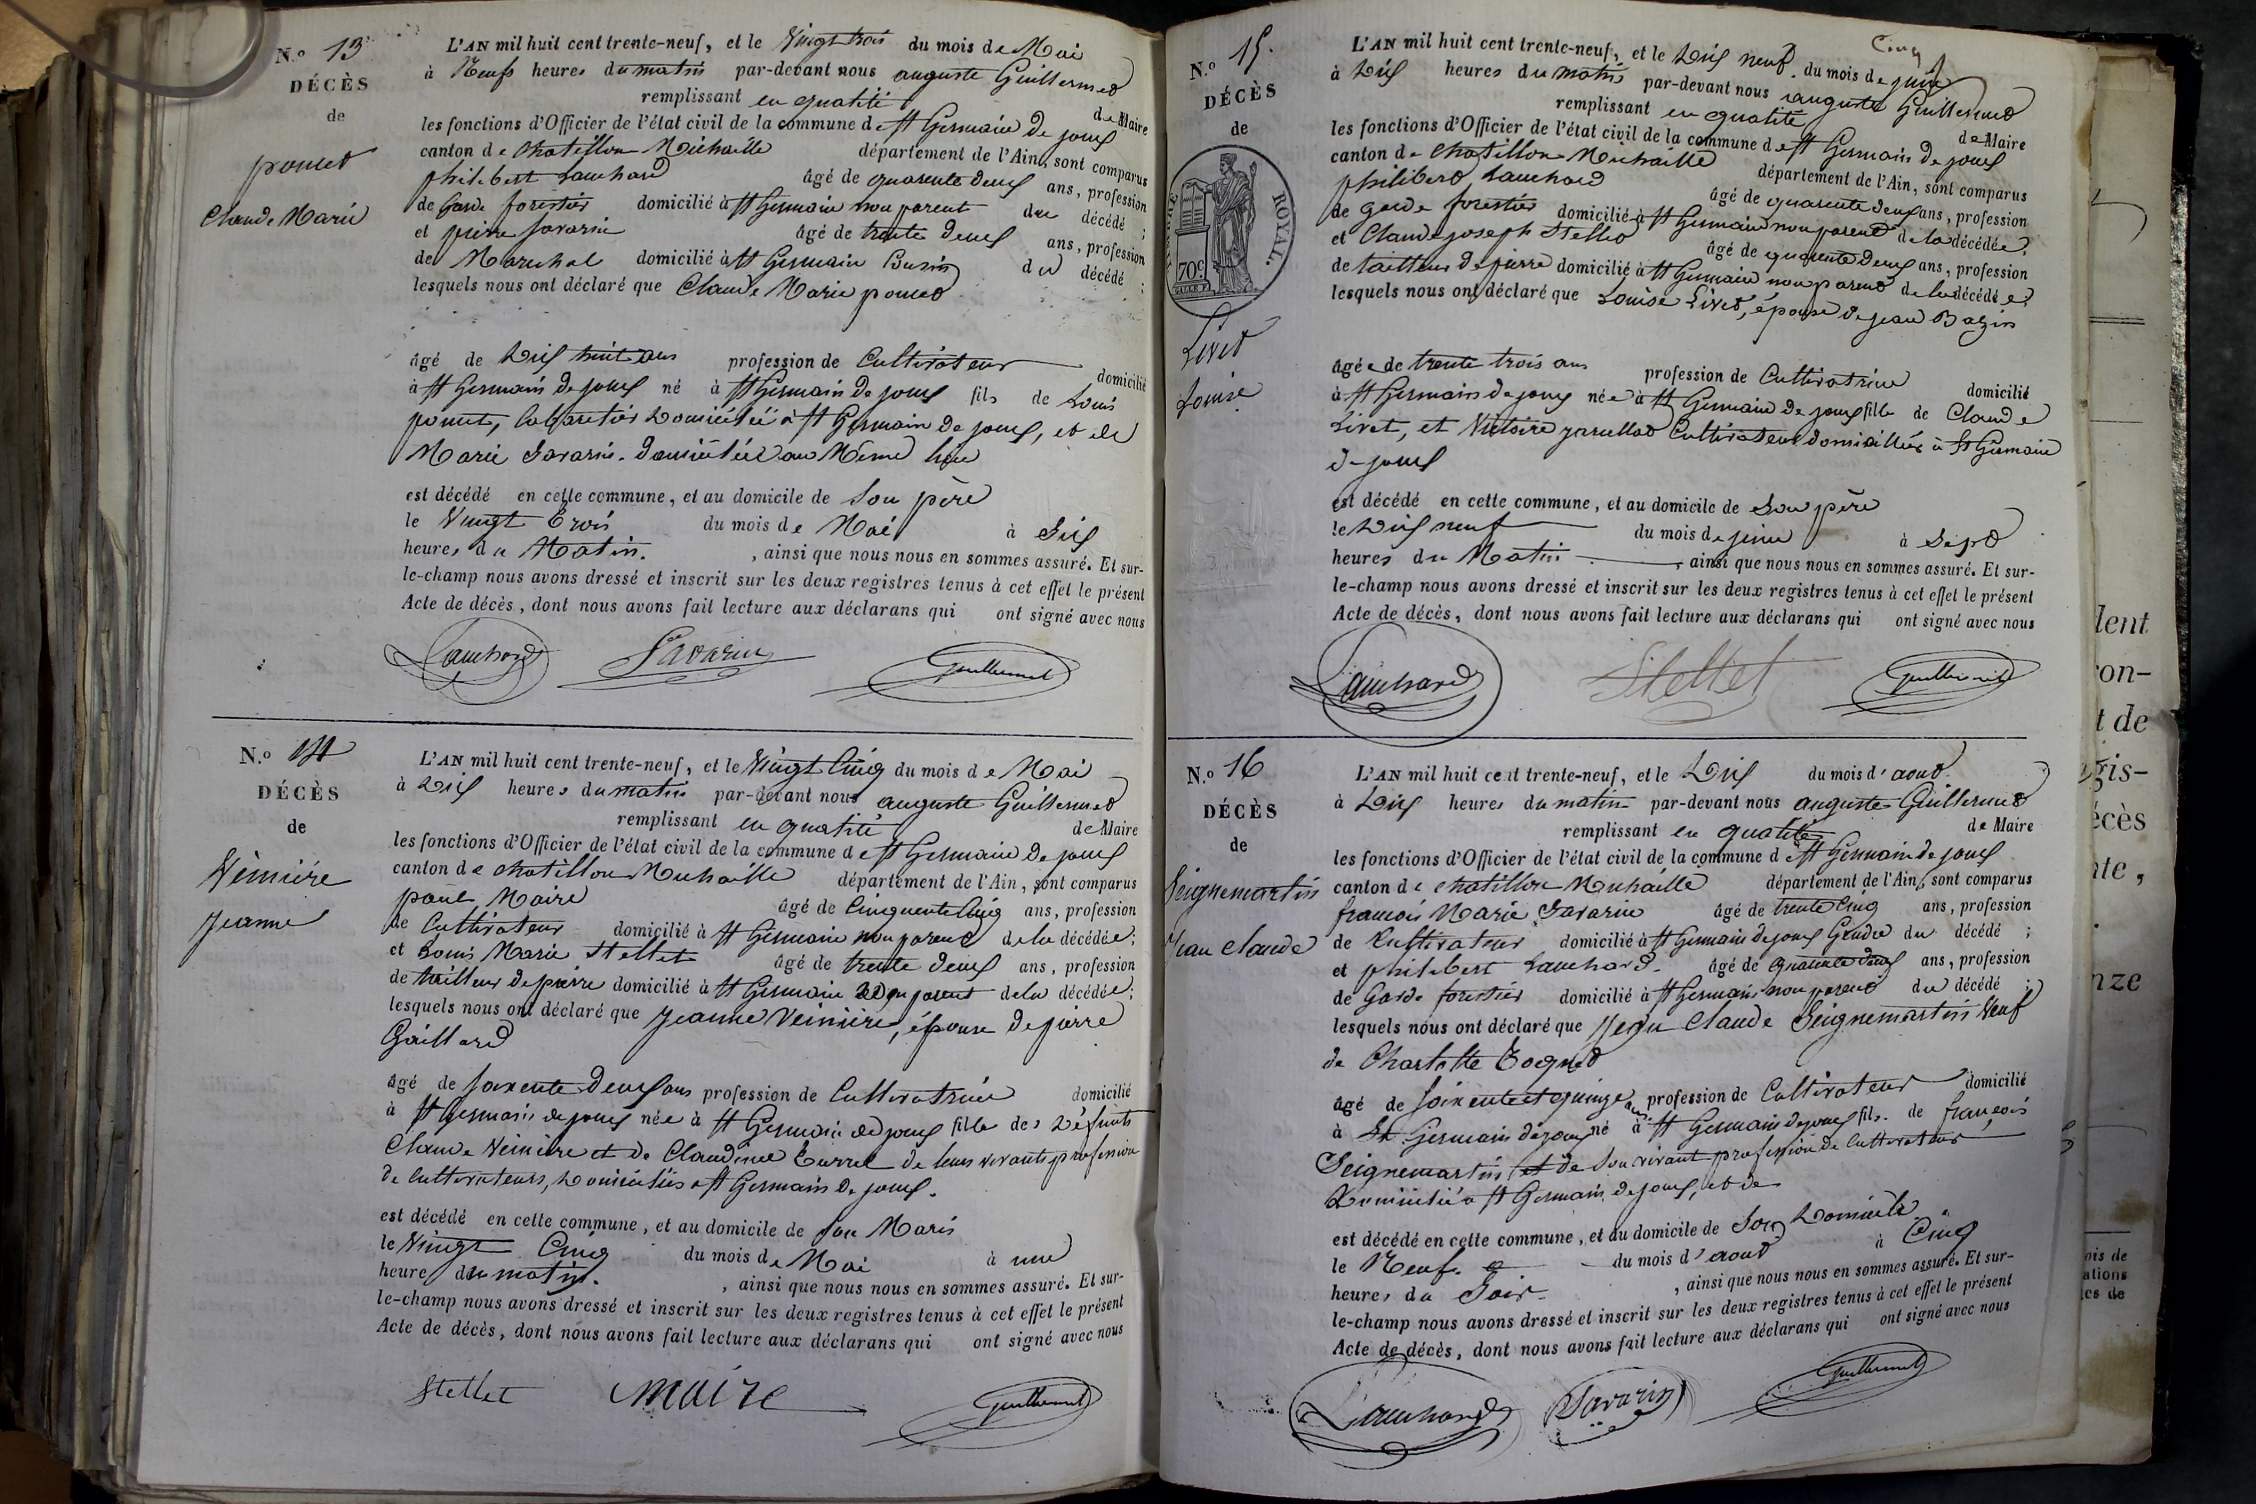 N.o 13
DÉCÈS
de
poncet
Claude Marie
L'AN mil huit cent trente-neuf, et le Vingt trois du mois de Mai
à Neuf heures du matin par-devant nous auguste Guillermet
remplissant en qualité de Maire
les fonctions d'Officier de l'état civil de la commune de St Germain de joux
canton de Chatillon Michaille département de l'Ain, sont comparus
philibert Lauchard âgé de quarente deux ans, profession
de Garde forestier domicilié à St Germain non parent du décédé ;
et pierre Savarin âgé de trente deux ans, profession
de Marechal domicilié à St Germain Cousin du décédé ;
lesquels nous ont déclaré que Claude Marie poncet
âgé de Dix huit ans profession de Cultivateur domicilié
à St Germain de joux né à St Germain de joux fils de Louis
poncet, Cabaretier Domicilié à St Germain de joux, et de
Marie Savarin. domiciliée au Même lieu
est décédé en cette commune, et au domicile de son père
le Vingt trois du mois de Mai à Six
heures du Matin. , ainsi que nous nous en sommes assuré. Et sur-
le-champ nous avons dressé et inscrit sur les deux registres tenus à cet effet le présent
Acte de décès, dont nous avons fait lecture aux déclarans qui ont signé avec nous
Lauchard Savarin Guillermet
N.o 14
DÉCÈS
de
Veinière
Jeanne
L'AN mil huit cent trente-neuf, et le Vingt Cinq du mois de Mai
à Dix heures du matin par-devant nous auguste Guillermet
remplissant en qualité de Maire
les fonctions d'Officier de l'état civil de la commune de St Germain de joux
canton de chatillon Michaille département de l'Ain, sont comparus
paul Maire âgé de Cinquente Cinq ans, profession
de Cultivateur domicilié à St Germain non parent de la décédée ;
et Louis Marie Stellet âgé de trente deux ans, profession
de tailleur de pierre domicilié à St Germain non parent de la décédée ;
lesquels nous ont déclaré que Jeanne Veinière, épouse de pierre
Gaillard
âgé de soixente deux ans profession de Cultivatrice domicilié
à St Germain de joux née à St Germain de joux fille des Défunts
Claude Veinière et de Claudine Turrel de leurs vivants profession
de Cultivateurs, Domiciliés à St Germain de joux.
est décédé en cette commune, et au domicile de son Maris
le Vingt Cinq du mois de Mai à une
heure du matin. , ainsi que nous nous en sommes assuré. Et sur-
le-champ nous avons dressé et inscrit sur les deux registres tenus à cet effet le présent
Acte de décès, dont nous avons fait lecture aux déclarans qui ont signé avec nous
Stellet Maire Guillermet
N.o 15.
DÉCÈS
de
TIMBRE ROYAL.
70c
Livet
Louise
Cinq
L'AN mil huit cent trente-neuf, et le Dix neuf du mois de juin
à Dix heures du matin par-devant nous auguste Guillermet
remplissant en qualité de Maire
les fonctions d'Officier de l'état civil de la commune de St Germain de joux
canton de chatillon Michaille département de l'Ain, sont comparus
philibert Lauchard âgé de quarente deux ans, profession
de Garde forestier domicilié à St Germain non parent de la décédée ;
et Claude joseph Stellet âgé de quarente deux ans, profession
de tailleur de pierre domicilié à St Germain non parent de la décédée ;
lesquels nous ont déclaré que Louise Livet, épouse de jean Bazin
âgée de trente trois ans profession de Cultivatrice domicilié
à St Germain de joux née à St Germain de joux fille de Claude
Livet, et Victoire Cultivateurs domiciliés à St Germain
de joux
est décédé en cette commune, et au domicile de son père
le Dix neuf du mois de juin à Sept
heures du Matin. , ainsi que nous nous en sommes assuré. Et sur-
le-champ nous avons dressé et inscrit sur les deux registres tenus à cet effet le présent
Acte de décès, dont nous avons fait lecture aux déclarans qui ont signé avec nous
Lauchard Stellet Guillermet
N.o 16
DÉCÈS
de
Seignemartin
Jean Claude
L'AN mil huit cent trente-neuf, et le Dix du mois d'aout
à Dix heures du matin par-devant nous auguste Guillermet
remplissant en qualité de Maire
les fonctions d'Officier de l'état civil de la commune de St Germain de joux
canton de chatillon Michaille département de l'Ain, sont comparus
françois Marie Savarin âgé de trente Cinq ans, profession
de Cultivateur domicilié à St Germain de joux Gendre du décédé ;
et philibert Lauchard. âgé de quarente deux ans, profession
de Garde forestier domicilié à St Germain non parent du décédé ;
lesquels nous ont déclaré que Jean Claude Seignemartin Veuf
de Charlotte Tognet
âgé de soixente et quinze ans profession de Cultivateur domicilié
à St Germain de joux né à St Germain de joux fils de françois
Seignemartin et de son vivant profession de Cultivateur
Domicilié à St Germain de joux, et de
est décédé en cette commune, et au domicile de son Domicile
le Neuf du mois d'aout à Cinq
heures du Soir. , ainsi que nous nous en sommes assuré. Et sur-
le-champ nous avons dressé et inscrit sur les deux registres tenus à cet effet le présent
Acte de décès, dont nous avons fait lecture aux déclarans qui ont signé avec nous
Lauchard Savarin Guillermet
lent
ron-
t de
gis-
écès
nte,
nze
ois de
ations
es de